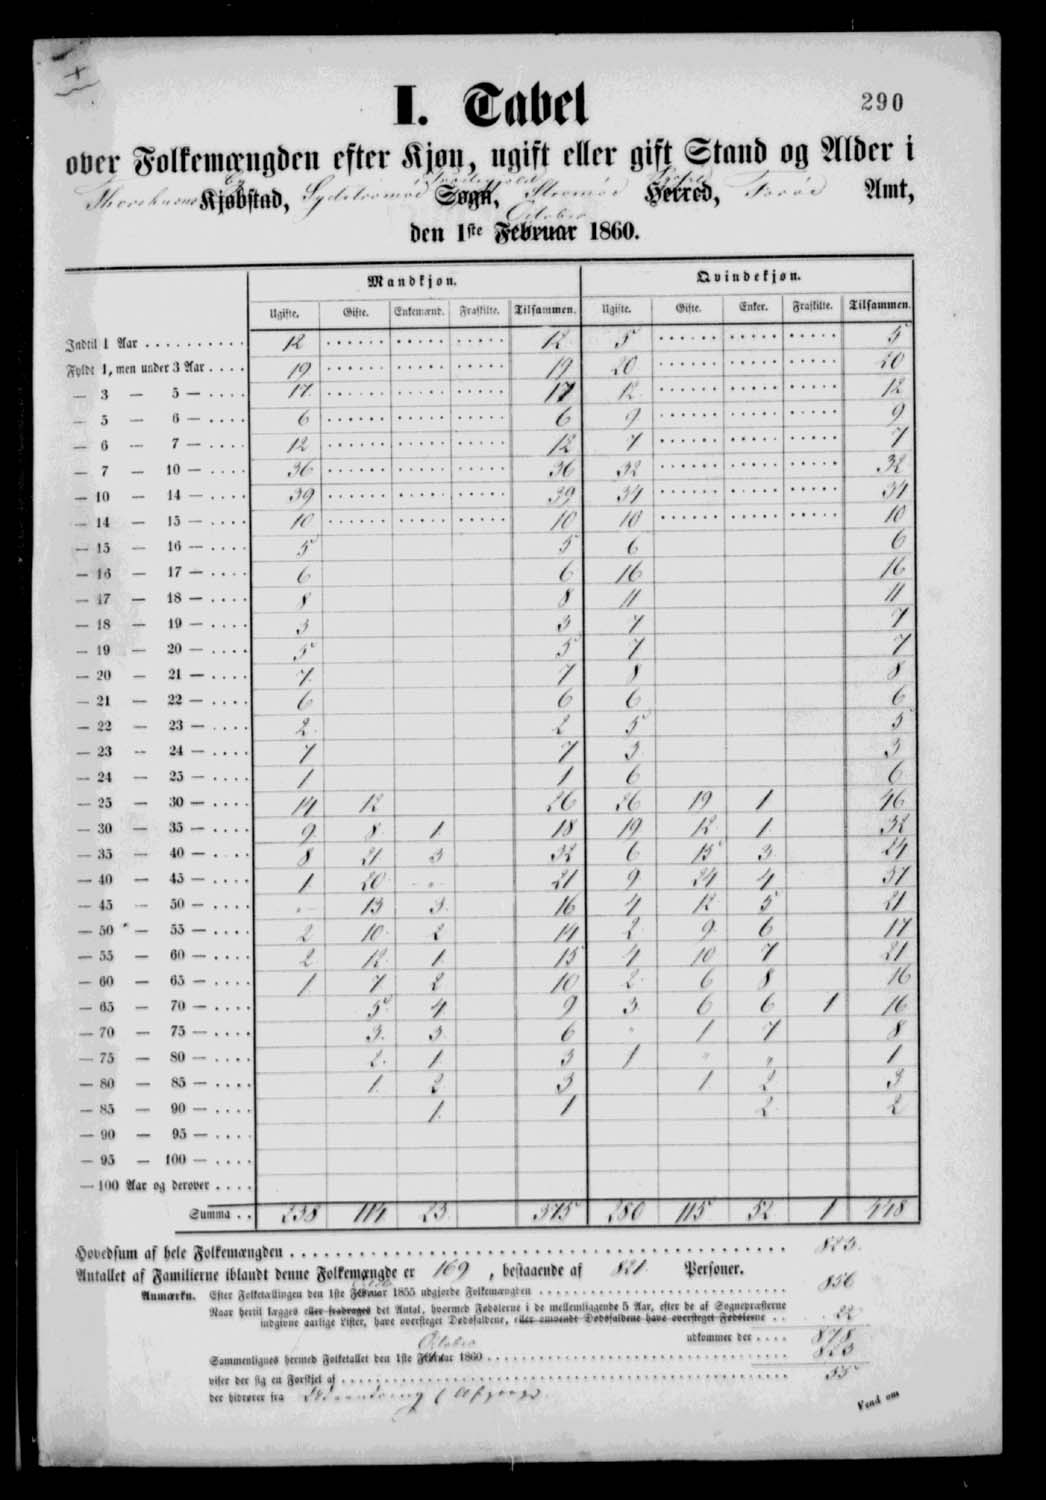 290
I. Tabel
over Folkemængden efter Kjøn, ugift eller gift Stand og Alder i
Thorshavns Kjøbstad, Sydstrømø Sogn, Strømø Herred, Færøe Amt,
October
den 1ste Februar 1860.
Mandkjøn. Qvindekjøn.
Ugifte. Gifte. Enkemænd. Fraskilte. Tilsammen. Ugifte. Gifte. Enker. Fraskilte. Tilsammen.
Indtil 1 Aar . . . . . . . . . . 12 12 5 5
Fyldt 1, men under 3 Aar . . . . 19 19 20 20
— 3 — 5 — . . . . 17 17 12 12
— 5 — 6 — . . . . 6 6 9 9
— 6 — 7 — . . . . 12 12 7 7
— 7 — 10 — . . . . 36 36 32 32
— 10 — 14 — . . . . 39 39 34 34
— 14 — 15 — . . . . 10 10 10 10
— 15 — 16 — . . . . 5 5 6 6
— 16 — 17 — . . . . 6 6 16 16
— 17 — 18 — . . . . 8 8 11 11
— 18 — 19 — . . . . 3 3 7 7
— 19 — 20 — . . . . 5 5 7 7
— 20 — 21 — . . . . 7 7 8 8
— 21 — 22 — . . . . 6 6 6 6
— 22 — 23 — . . . . 2 2 5 5
— 23 — 24 — . . . . 7 7 3 3
— 24 — 25 — . . . . 1 1 6 6
— 25 — 30 — . . . . 14 12 26 26 19 1 46
— 30 — 35 — . . . . 9 8 1 18 19 12 1 32
— 35 — 40 — . . . . 8 21 3 32 6 15 3 24
— 40 — 45 — . . . . 1 20 " 21 9 24 4 37
— 45 — 50 — . . . . " 13 3 16 4 12 5 21
— 50 — 55 — . . . . 2 10 2 14 2 9 6 17
— 55 — 60 — . . . . 2 12 1 15 4 10 7 21
— 60 — 65 — . . . . 1 7 2 10 2 6 8 16
— 65 — 70 — . . . . 5 4 9 3 6 6 1 16
— 70 — 75 — . . . . 3 3 6 " 1 7 8
— 75 — 80 — . . . . 2 1 3 1 " " 1
— 80 — 85 — . . . . 1 2 3 1 2 3
— 85 — 90 — . . . . 1 1 2 2
— 90 — 95 — . . . .
— 95 — 100 — . . . .
— 100 Aar og derover . . . .
Summa . . 238 114 23 375 280 115 52 1 448
Hovedsum af hele Folkemængden . . . . 823.
Antallet af Familierne iblandt denne Folkemængde er 169, bestaaende af 821 Personer.
Anmærkn. Efter Folketællingen den 1ste Februar 1855 udgjorde Folkemængden . . . . 856
Naar hertil lægges eller fradrages det Antal, hvormed Fødslerne i de mellemliggende 5 Aar, efter de af Sognepræsterne
indgivne aarlige Lister, have oversteget Dødsfaldene, eller omvendt Dødsfaldene have oversteget Fødslerne . . 22
udkommer der . . . . 878
October
Sammenlignes hermed Folketallet den 1ste Februar 1860 . . . . 823
viser der sig en Forskjel af . . . . 55
der hidrører fra Udvandring
Vend om